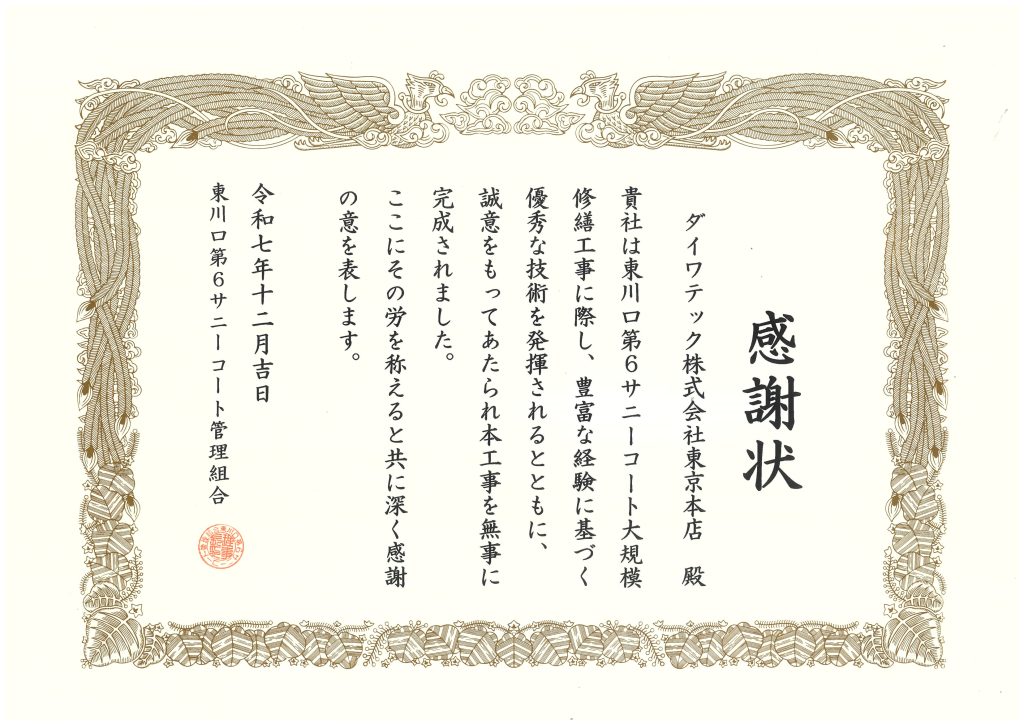 感謝状
ダイワテック株式会社東京本店　殿
貴社は東川口第６サニーコート大規模
修繕工事に際し、豊富な経験に基づく
優秀な技術を発揮されるとともに、
誠意をもってあたられ本工事を無事に
完成されました。
ここにその労を称えると共に深く感謝
の意を表します。
令和七年十二月吉日
東川口第６サニーコート管理組合